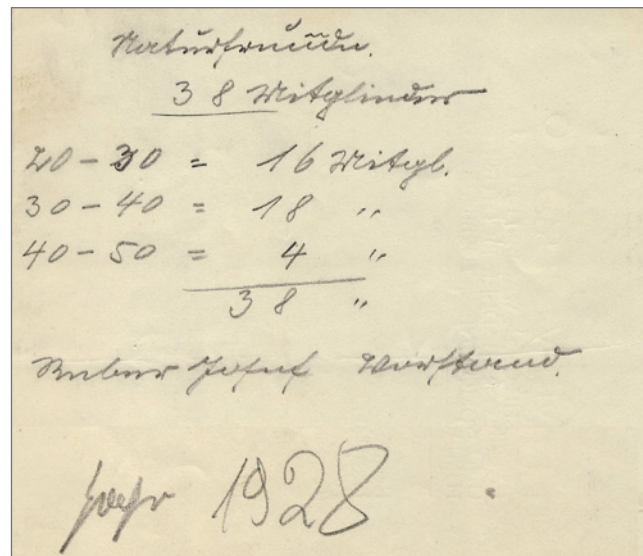 Naturfreunde.
38 Mitglieder
20-30 = 16 Mitgl.
30-40 = 18 "
40-50 = 4 "
38 "
Josef Vorstand.
Jahr 1928